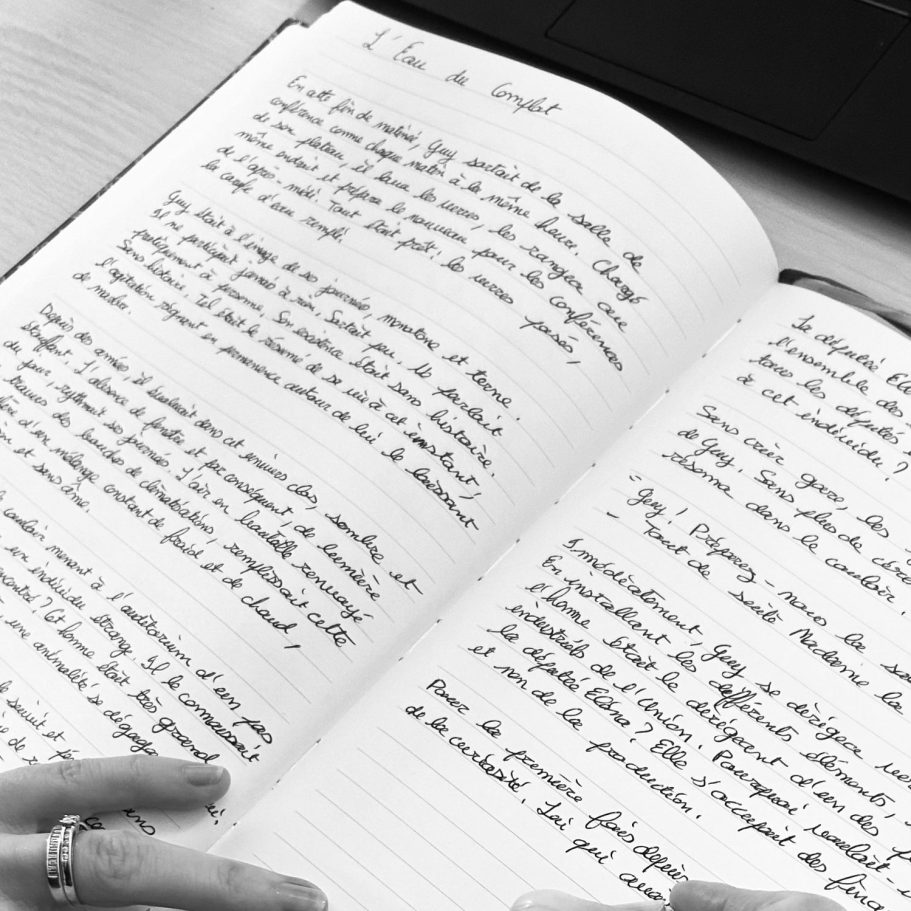 L'Eau du Complot
En cette fin de matinée, Guy sortait de la salle de
conférence comme chaque matin à la même heure. Chargé
de son plateau, il lava les verres, les rangea au
même endroit et prépara le nouveau pour les conférences
de l'après-midi. Tout était prêt : les verres posés,
la carafe d'eau remplie.
Guy était à l'image de ses journées, monotone et terne.
Il ne participait jamais à rien, sortait peu. Ne parlait
pratiquement à personne. Son existence était sans histoire.
Sans histoire. Tel était le résumé de sa vie à cet instant,
l'agitation régnant en permanence autour de lui le laissant
de marbre.
Depuis des années il évoluait dans cet univers clos, sombre et
étouffant. L'absence de fenêtre et par conséquent, de lumière
du jour, rythmait ses journées. L'air en
bouches de climatisations, remplissait cette
d'un mélange constant de froid et de chaud,
et sans âme.
couloir menant à l'auditorium d'un pas
un individu étrange. Il le connaissait
? Cet homme était très grand
une animalité se dégagea
Le députée El
l'ensemble des
tous les députés
à cet individu ?
Sans crier gare, les
de Guy. Sans plus de céré
résonna dans le couloir.
- Guy ! Préparez-nous la sa
- Tout de suite Madame la
Immédiatement, Guy se dirigea
En installant les différents éléments,
l'homme. C'était le dirigeant d'un des
industriels de l'Union. Pourquoi voulait-
la députée Elona ? Elle s'occupait des fina
et non de la production.
Pour la première fois depuis
de la curiosité. Lui qui avai